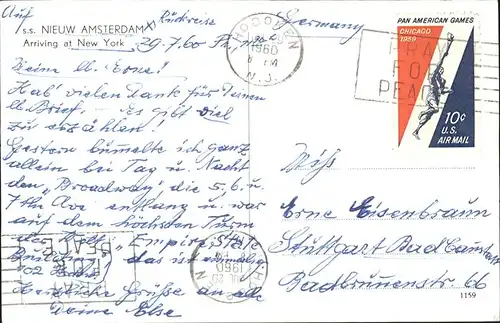 Auf
s.s. NIEUW AMSTERDAM Rückreise
Germany
Arriving at New York 29.7.60
HOBOKEN
1960
PM
N.J.
PRAY
FOR
PEACE
PAN AMERICAN GAMES
CHICAGO
1959
10¢
U.S.
AIR MAIL
Meine lb. Erne!
Hab' vielen Dank für Deinen
lb. Brief. Es gibt viel
zu erzählen!
Gestern bummelte ich ganz
allein bei Tag u. Nacht
den "Broadway", die 5. 6. u.
7th Ave entlang u. war
auf dem höchsten Turm
der Welt, "Empire State
Building", das ist
102
Herzliche Grüße an alle
Deine Else
Miss
Erne Eisenbraun
Stuttgart Bad Cannstatt
Badbrunnenstr. 66
PEACE
1960
1159